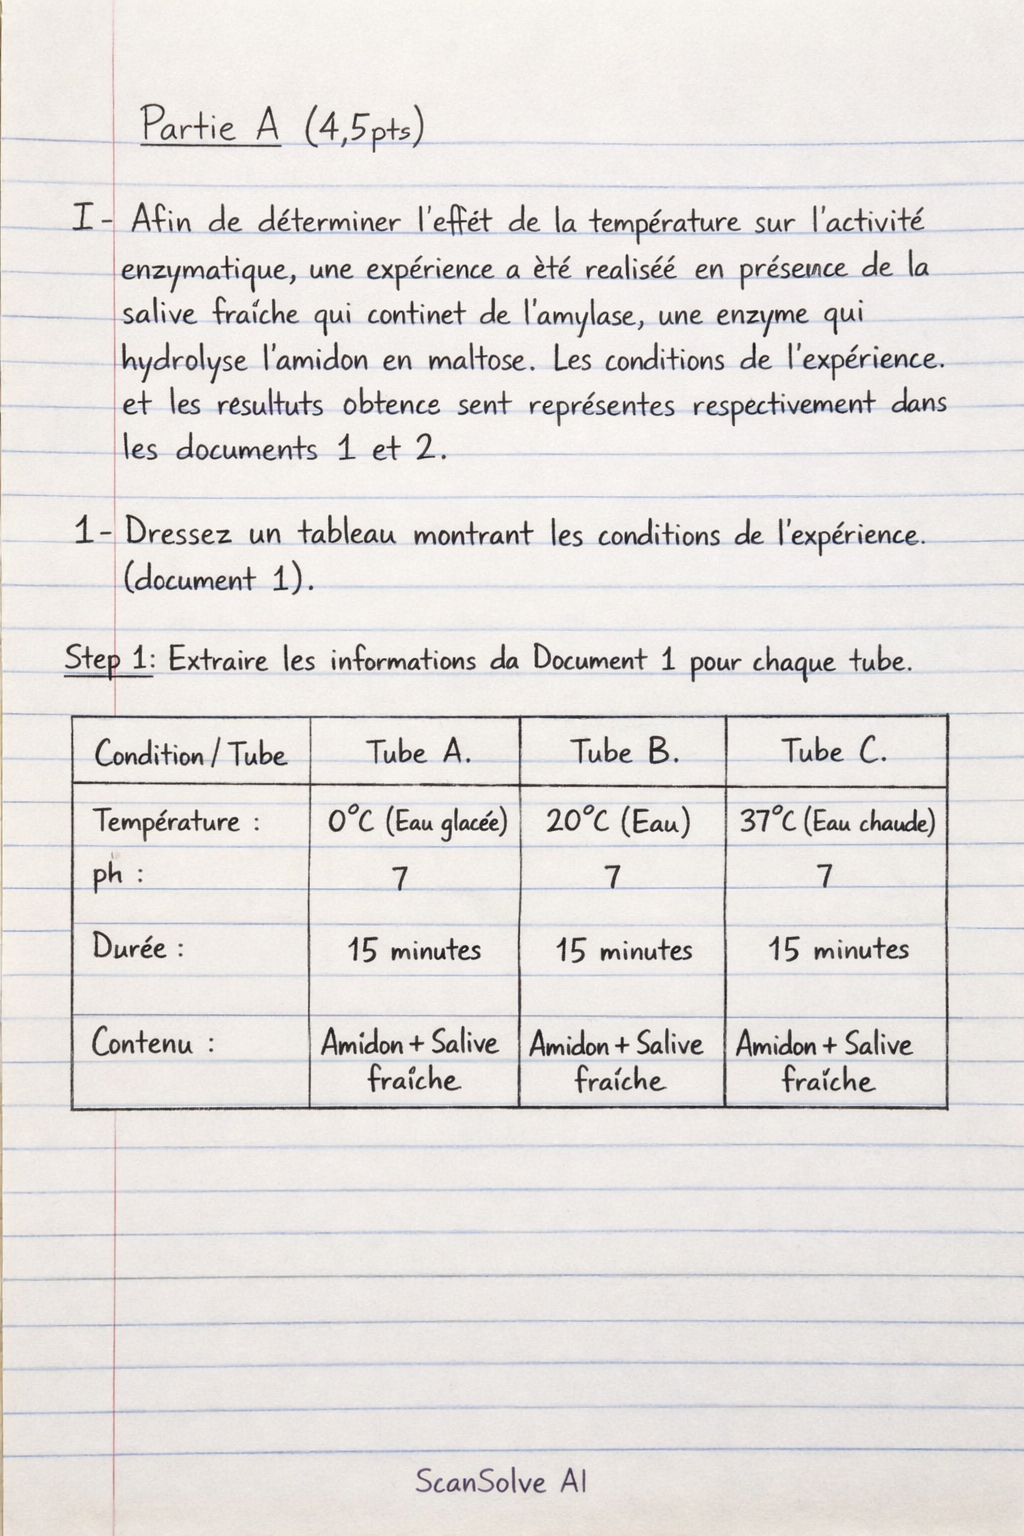 Partie A (4,5pts)
I - Afin de déterminer l'effét de la température sur l'activité
enzymatique, une expérience a èté realiséé en présence de la
salive fraîche qui continet de l'amylase, une enzyme qui
hydrolyse l'amidon en maltose. Les conditions de l'expérience.
et les resultuts obtence sent représentes respectivement dans
les documents 1 et 2.
1- Dressez un tableau montrant les conditions de l'expérience.
(document 1).
Step 1: Extraire les informations da Document 1 pour chaque tube.
Condition / Tube Tube A. Tube B. Tube C.
Température : 0°C (Eau glacée) 20°C (Eau) 37°C (Eau chaude)
ph : 7 7 7
Durée : 15 minutes 15 minutes 15 minutes
Contenu : Amidon + Salive Amidon + Salive Amidon + Salive
fraîche fraîche fraîche
ScanSolve AI